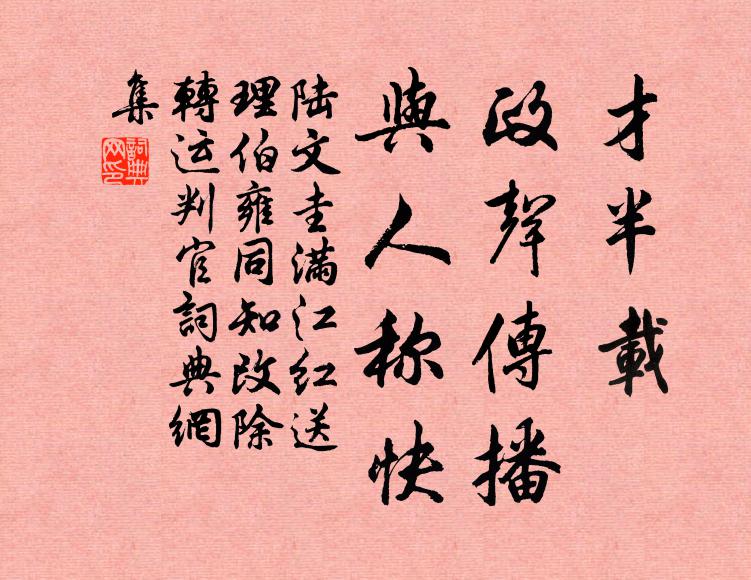 才半載
政聲傳播
與人称快
陆文圭滿江红送
理伯雍同知改除
轉运判官詞典網
集
詞典
网印